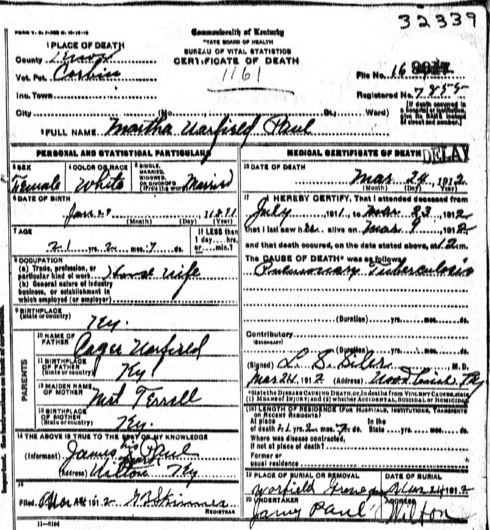 32339
Commonwealth of Kentucky
STATE BOARD OF HEALTH
BUREAU OF VITAL STATISTICS
CERTIFICATE OF DEATH
1161
1 PLACE OF DEATH
County
Vot. Pct. Corbin
Inc. Town
City (No. St.; Ward)
File No. 16
Registered No.
[If death occurred in a hospital or institution, give its NAME instead of street and number.]
2 FULL NAME Martha Warfield Paul
PERSONAL AND STATISTICAL PARTICULARS
3 SEX Female
4 COLOR OR RACE White
5 SINGLE, MARRIED, WIDOWED, OR DIVORCED (Write the word) Married
6 DATE OF BIRTH
(Month) (Day) (Year)
7 AGE
21 yrs. 2 mos. 7 ds.
If LESS than 1 day, hrs. or min.?
8 OCCUPATION
(a) Trade, profession, or particular kind of work House Wife
(b) General nature of industry, business, or establishment in which employed (or employer)
9 BIRTHPLACE (State or country) Ky.
PARENTS
10 NAME OF FATHER Roger Warfield
11 BIRTHPLACE OF FATHER (State or country) Ky
12 MAIDEN NAME OF MOTHER Terrell
13 BIRTHPLACE OF MOTHER (State or country) Ky.
14 THE ABOVE IS TRUE TO THE BEST OF MY KNOWLEDGE
(Informant) James Paul
(Address) Wilton Ky
15
Filed Mar 1912 Skinner
REGISTRAR
11-6184
MEDICAL CERTIFICATE OF DEATH
DELAY
16 DATE OF DEATH
Mar 24, 1912
(Month) (Day) (Year)
17 I HEREBY CERTIFY, That I attended deceased from
July, 1911, to Mar 23, 1912
that I last saw alive on Mar 9, 1912
and that death occurred, on the date stated above, at 12 m.
The CAUSE OF DEATH* was as follows:
Pulmonary Tuberculosis
(Duration) yrs. mos. ds.
Contributory
(SECONDARY)
(Duration) yrs. mos. ds.
(Signed) M.D.
Mar 24, 1912 (Address)
*State the DISEASE CAUSING DEATH, or, in deaths from VIOLENT CAUSES, state (1) MEANS OF INJURY; and (2) whether ACCIDENTAL, SUICIDAL, OR HOMICIDAL.
18 LENGTH OF RESIDENCE (FOR HOSPITALS, INSTITUTIONS, TRANSIENTS OR RECENT RESIDENTS)
At place of death yrs. mos. ds. State yrs. mos. ds.
Where was disease contracted, if not at place of death?
Former or usual residence
19 PLACE OF BURIAL OR REMOVAL
Warfield
DATE OF BURIAL
1912
20 UNDERTAKER
Paul
ADDRESS
Wilton